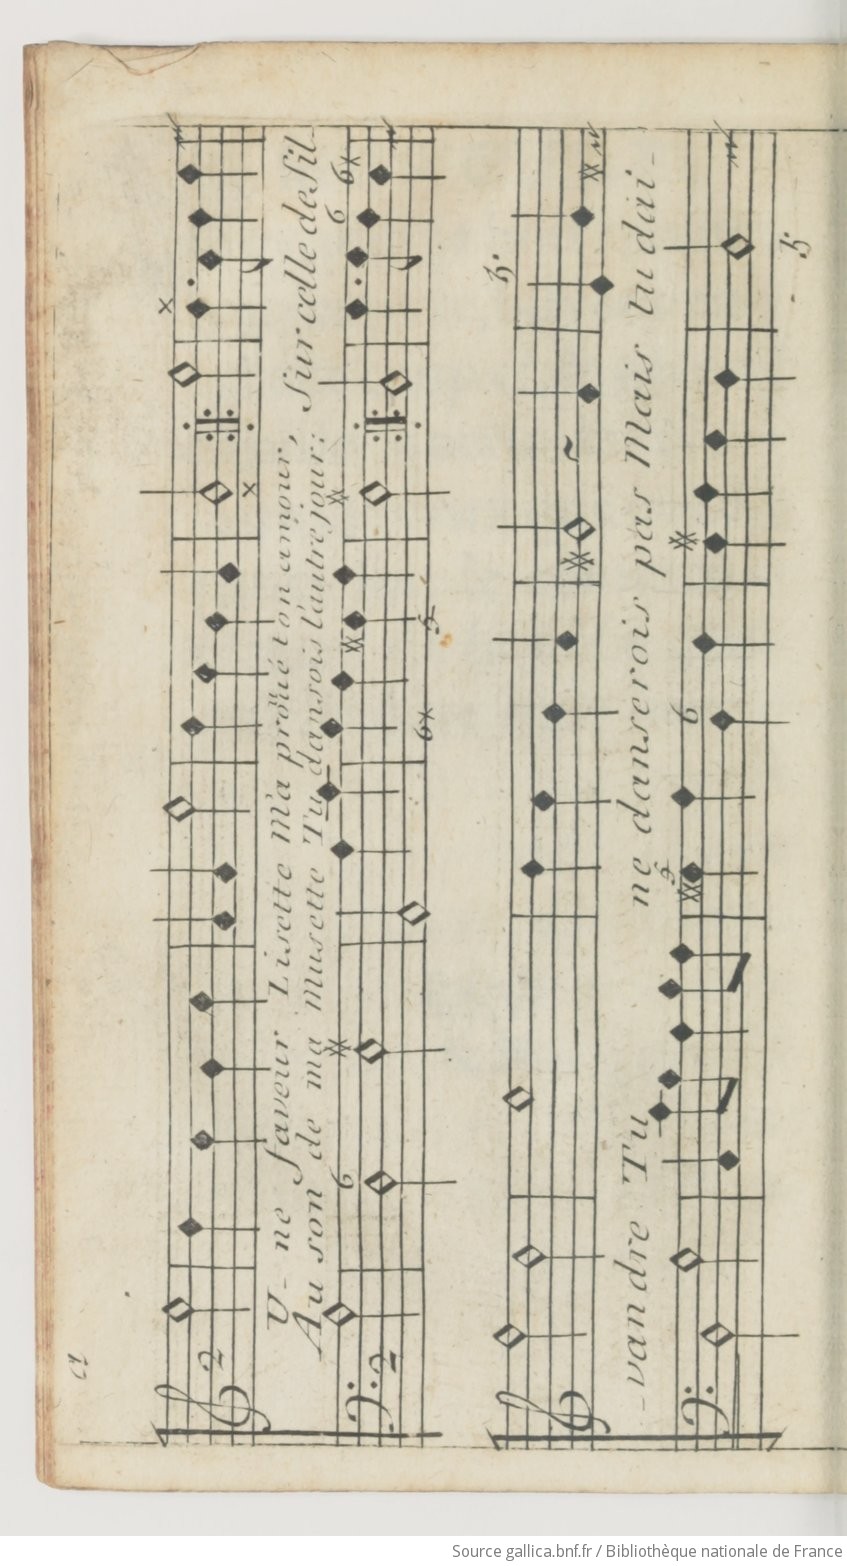 2
U- ne faveur Lisette m'a prouué ton amour, Sur celle de Sil-
Au son de ma musette Tu dansois l'autre jour:
-vandre Tu ne danserois pas Mais tu dai-
Source gallica.bnf.fr / Bibliothèque nationale de France